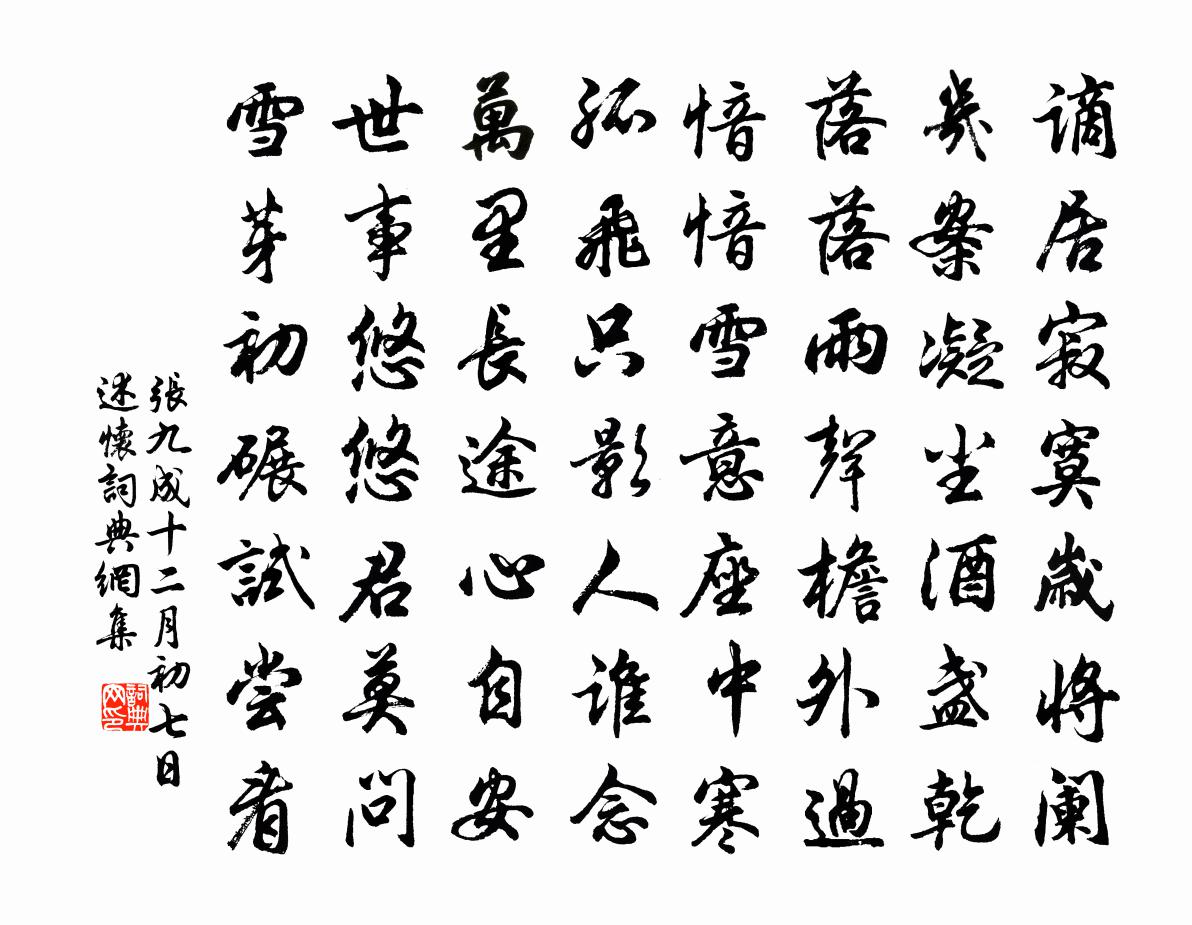 謫居寂寞歲將闌
幾案凝尘酒盞乾
落落雨聲檐外過
愔愔雪意座中寒
孤飛只影人誰念
萬里長途心自安
世事悠悠君莫問
雪芽初碾試嘗看
張九成十二月初七日
述懷詞典網集
詞典网印